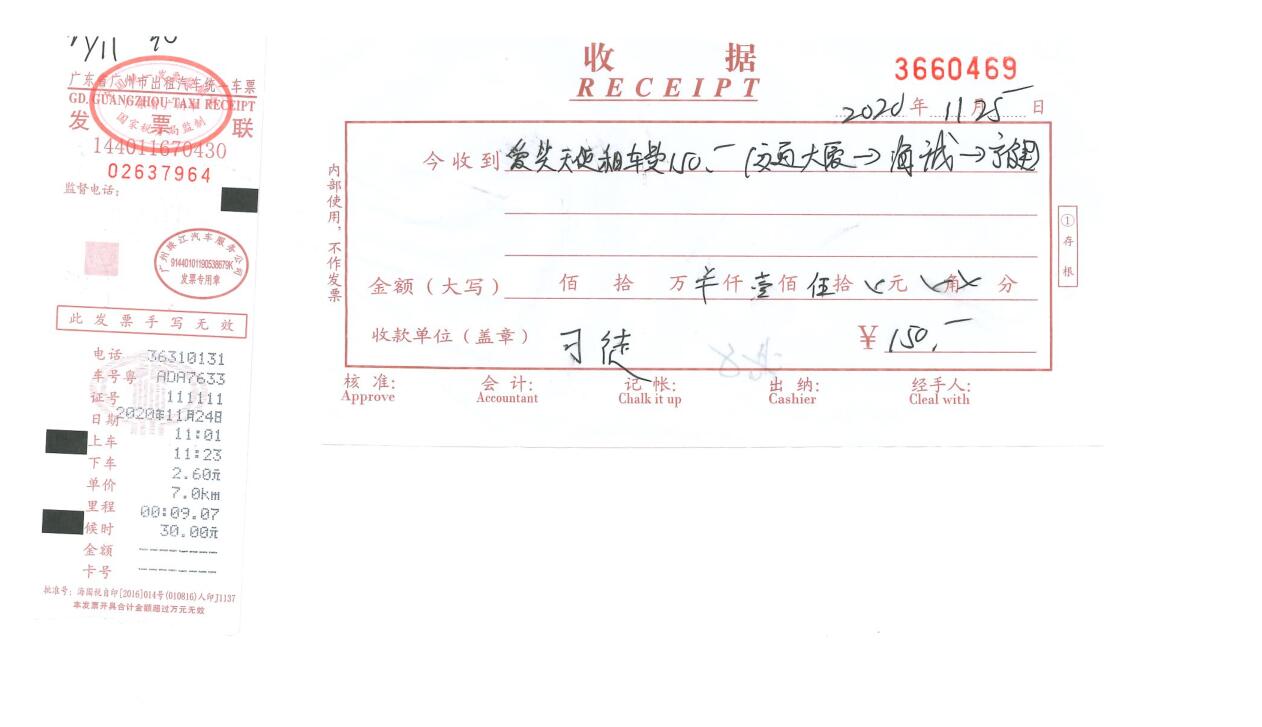 广东省广州市出租汽车统一车票
GD. GUANGZHOU TAXI RECEIPT
发 票 联
国家税务总局监制
144011670430
02637964
监督电话:
广州珠江汽车服务公司
91440101190538679K
发票专用章
此发票手写无效
电话 36310131
车号粤 ADA7633
证号 111111
日期 2020年11月24日
上车 11:01
下车 11:23
单价 2.60元
里程 7.0km
候时 00:09.07
金额 30.00元
卡号 --------
批准号: 海国税自印[2016]014号(010816)人印J1137
本发票开具合计金额超过万元无效
收 据
RECEIPT
3660469
2020年11月25日
今收到 爱笑天使租车费150.- (交通大厦→海诚→
金额(大写) 佰 拾 万 仟壹佰伍拾 元 角 分
收款单位(盖章) 司徒 ¥150.-
内部使用,不作发票
①存根
核 准: 会 计: 记 帐: 出 纳: 经手人:
Approve Accountant Chalk it up Cashier Cleal with